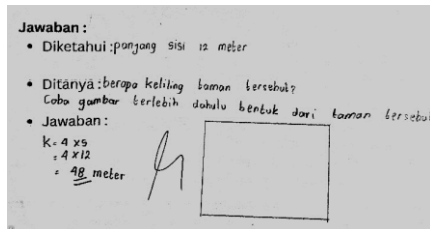 Jawaban :
• Diketahui : panjang sisi 12 meter
• Ditanya : berapa keliling taman tersebut?
Coba gambar terlebih dahulu bentuk dari taman tersebu
• Jawaban :
K = 4 x s
= 4 x 12
= 48 meter